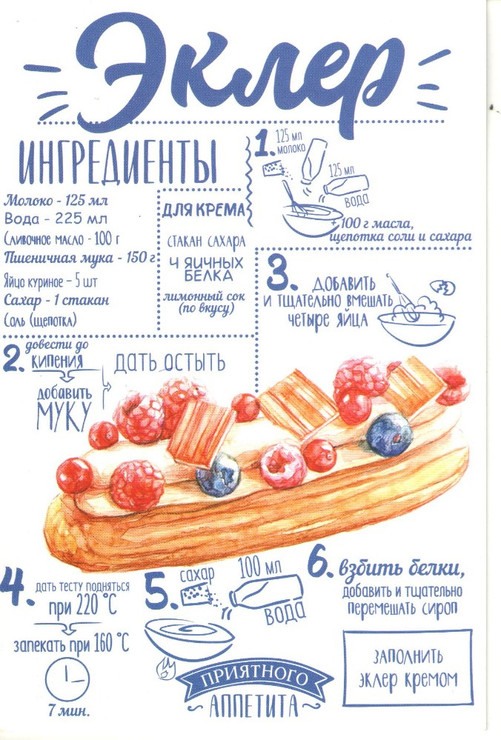 Эклер
ИНГРЕДИЕНТЫ
Молоко - 125 мл
Вода - 225 мл
Сливочное масло - 100 г
Пшеничная мука - 150 г
Яйцо куриное - 5 шт
Сахар - 1 стакан
Соль (щепотка)
ДЛЯ КРЕМА
СТАКАН САХАРА
4 ЯИЧНЫХ
БЕЛКА
лимонный сок
(по вкусу)
1.
125 мл
молоко
125 мл
вода
+ 100 г масла,
щепотка соли и сахара
2. довести до
кипения
дать остыть
добавить
МУКУ
3. ДОБАВИТЬ
И ТЩАТЕЛЬНО ВМЕШАТЬ
ЧЕТЫРЕ ЯЙЦА
4. дать тесту подняться
при 220 °C
запекать при 160 °C
7 мин.
5. сахар
100 мл
вода
6. взбить белки,
добавить и тщательно
перемешать сироп
ЗАПОЛНИТЬ
ЭКЛЕР КРЕМОМ
ПРИЯТНОГО
АППЕТИТА